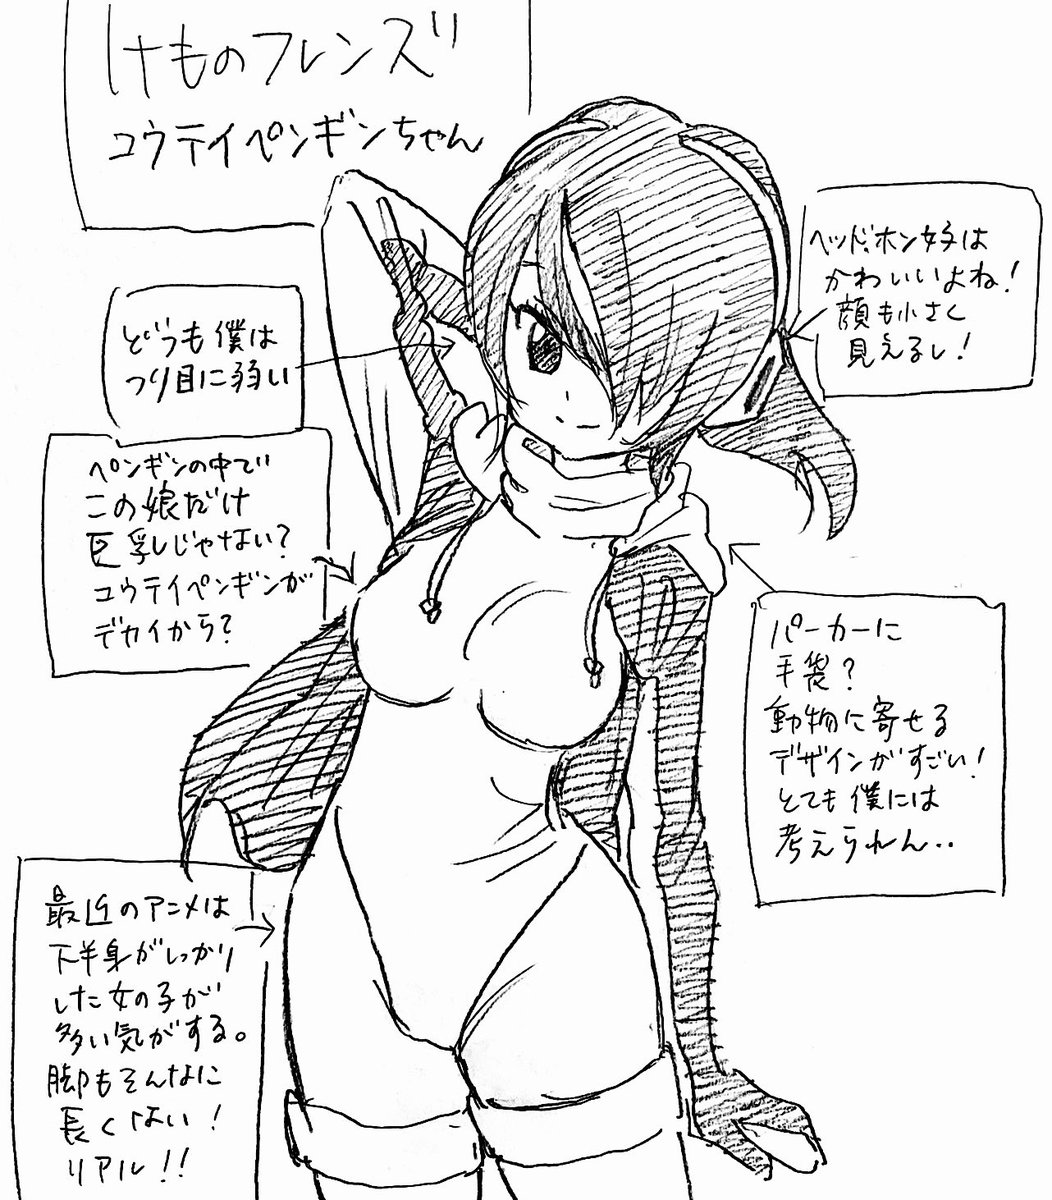 けものフレンズ
コウテイペンギンちゃん
ヘッドホン女子は
かわいいよね!
顔も小さく
見えるし!
どうも僕は
つり目に弱い
ペンギンの中で
この娘だけ
巨乳じゃない?
コウテイペンギンが
デカイから?
パーカーに
手袋?
動物に寄せる
デザインがすごい!
とても僕には
考えられん..
最近のアニメは
下半身がしっかり
した女の子が
多い気がする。
脚もそんなに
長くない!
リアル!!